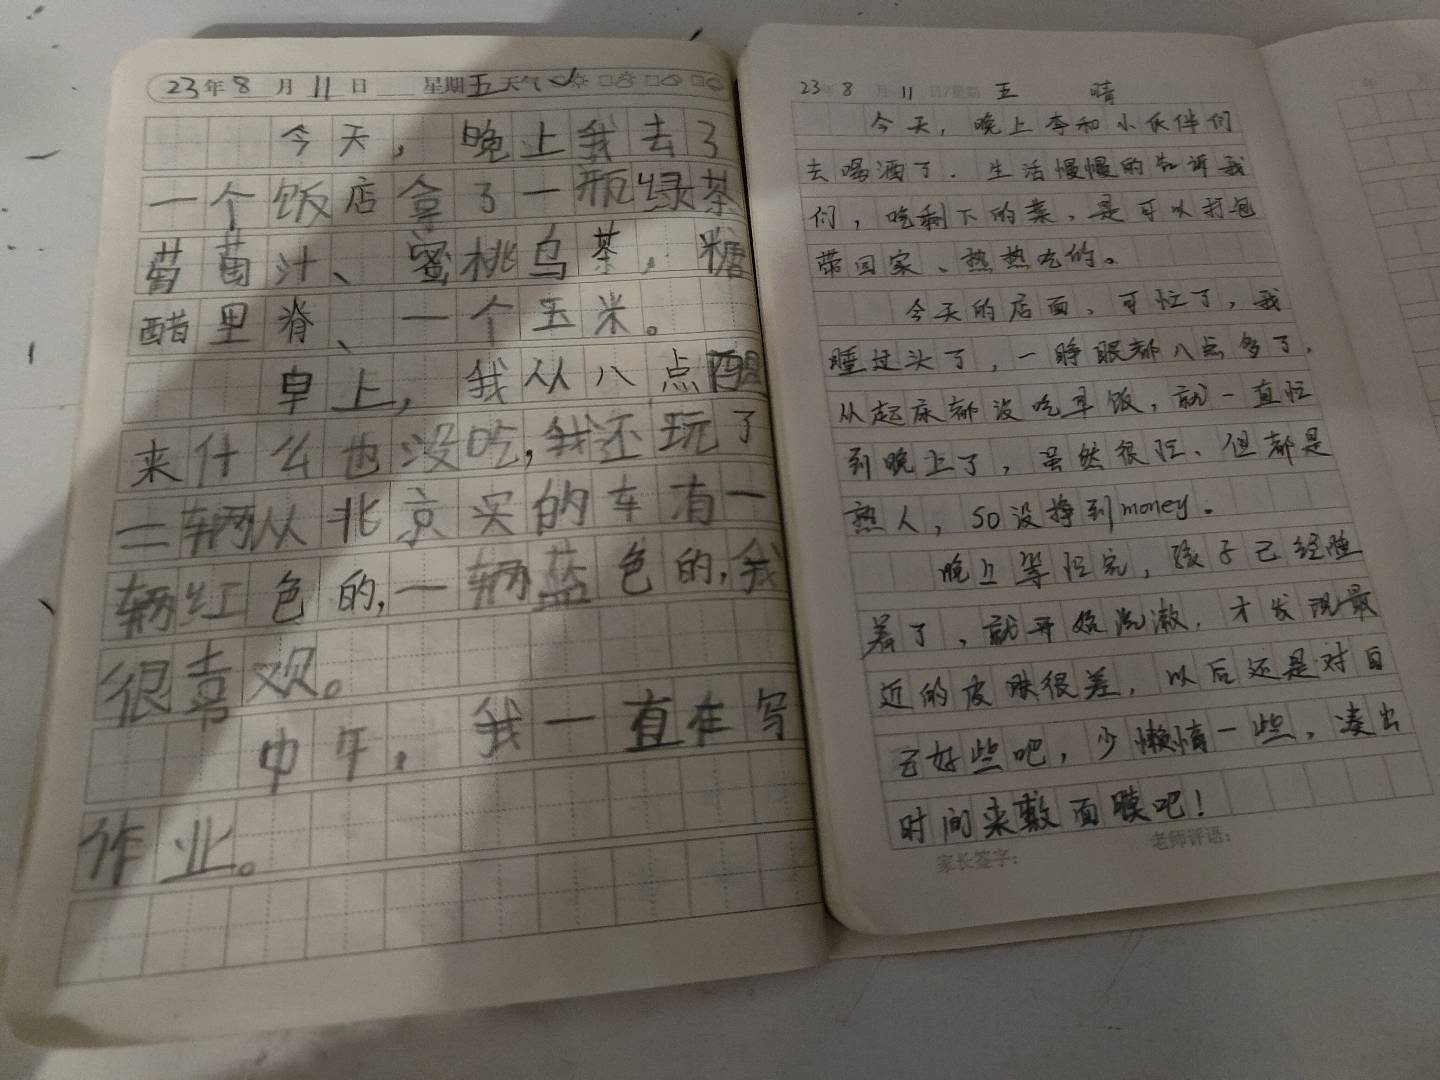 23年8月11日 星期五天气
今天，晚上我去了
一个饭店拿了一瓶绿茶
萄萄汁、蜜桃乌茶，糖
醋里脊、一个玉米。
早上，我从八点醒
来什么也没吃，我还玩了
二辆从北京买的车有一
辆红色的，一辆蓝色的，我
很喜欢。
中午，我一直在写
作业。
23年8月11日 星期 五 晴
今天，晚上李和小伙伴们
去喝酒了．生活慢慢的告诉我
们，吃剩下的菜，是可以打包
带回家、热热吃的。
今天的店面，可忙了，我
睡过头了，一睁眼都八点多了，
从起床都没吃早饭，就一直忙
到晚上了，虽然很忙、但都是
熟人，so没挣到money。
晚上等忙完，孩子已经睡
着了，就开始洗漱，才发现最
近的皮肤很差，以后还是对自
己好些吧，少懒惰一些，凑出
时间来敷面膜吧！
家长签字：
老师评语：